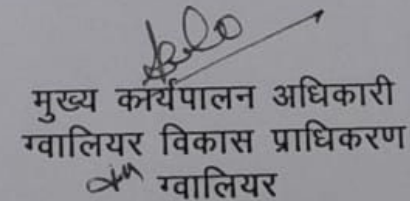 मुख्य कार्यपालन अधिकारी
ग्वालियर विकास प्राधिकरण
ग्वालियर